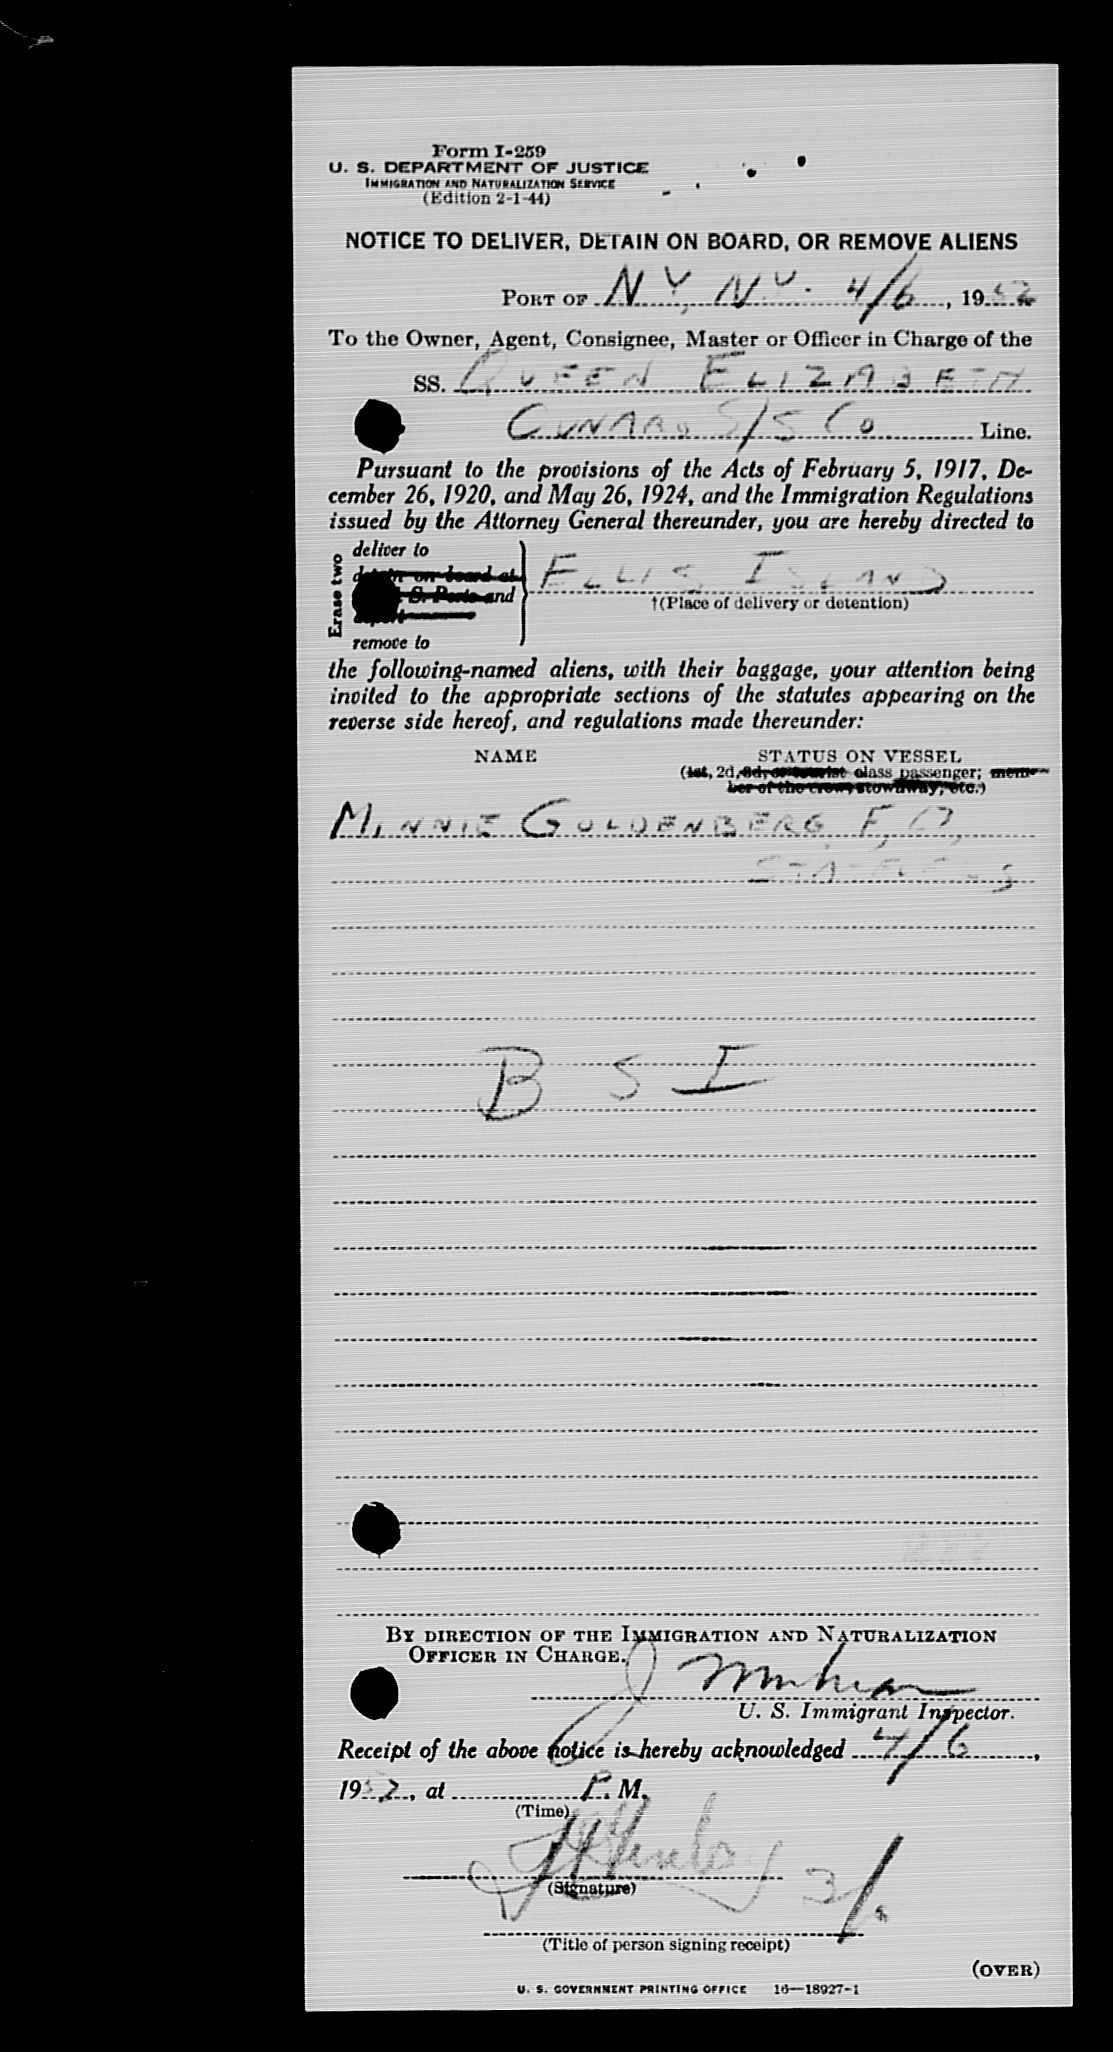 Form I-259
U. S. DEPARTMENT OF JUSTICE
IMMIGRATION AND NATURALIZATION SERVICE
(Edition 2-1-44)
NOTICE TO DELIVER, DETAIN ON BOARD, OR REMOVE ALIENS
PORT OF N Y, N.Y. 4/6, 1952
To the Owner, Agent, Consignee, Master or Officer in Charge of the
SS. QUEEN ELIZABETH
CUNARD S/S CO Line.
Pursuant to the provisions of the Acts of February 5, 1917, De-
cember 26, 1920, and May 26, 1924, and the Immigration Regulations
issued by the Attorney General thereunder, you are hereby directed to
Erase two
deliver to
detain on board at
S. Ports and
deport
remove to
ELLIS ISLAND
†(Place of delivery or detention)
the following-named aliens, with their baggage, your attention being
invited to the appropriate sections of the statutes appearing on the
reverse side hereof, and regulations made thereunder:
NAME STATUS ON VESSEL
(1st, 2d, 3d, or tourist class passenger; mem-
ber of the crew, stowaway, etc.)
MINNIE GOLDENBERG F,
B S I
BY DIRECTION OF THE IMMIGRATION AND NATURALIZATION
OFFICER IN CHARGE.
U. S. Immigrant Inspector.
Receipt of the above notice is hereby acknowledged 4/6,
1952, at P. M.
(Time)
(Signature)
3/
(Title of person signing receipt)
(OVER)
U. S. GOVERNMENT PRINTING OFFICE 16—18927-1